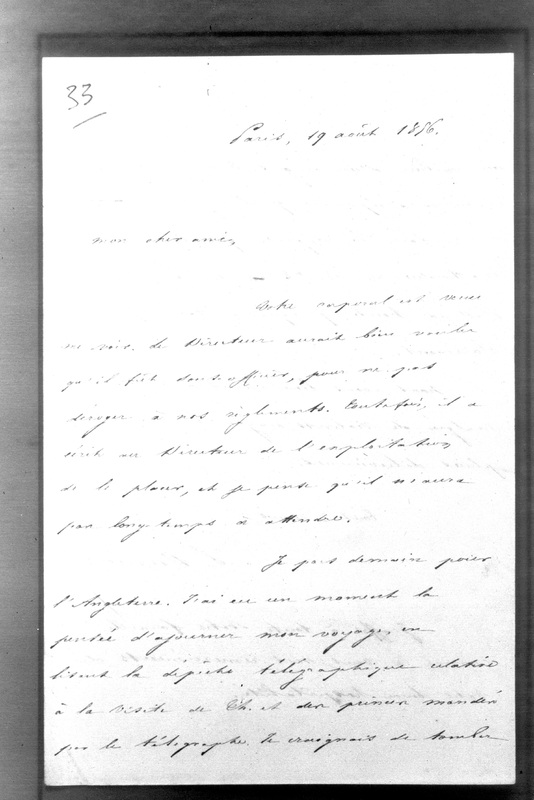 33
Paris, 19 août 1856.
Mon cher ami,
Votre caporal est venu
me voir. Le Directeur aurait bien voulu
qu'il fût sous-officier, pour ne pas
déroger à nos règlements. Toutefois, il a
écrit au Directeur de l'exploitation,
de le placer, et je pense qu'il n'aura
pas longtemps à attendre.
Je pars demain pour
l'Angleterre. J'ai eu un moment la
pensée d'ajourner mon voyage, en
lisant la dépêche télégraphique relative
à la visite de Ch. et des princes mandés
par le télégraphe. Je craignais de tomber